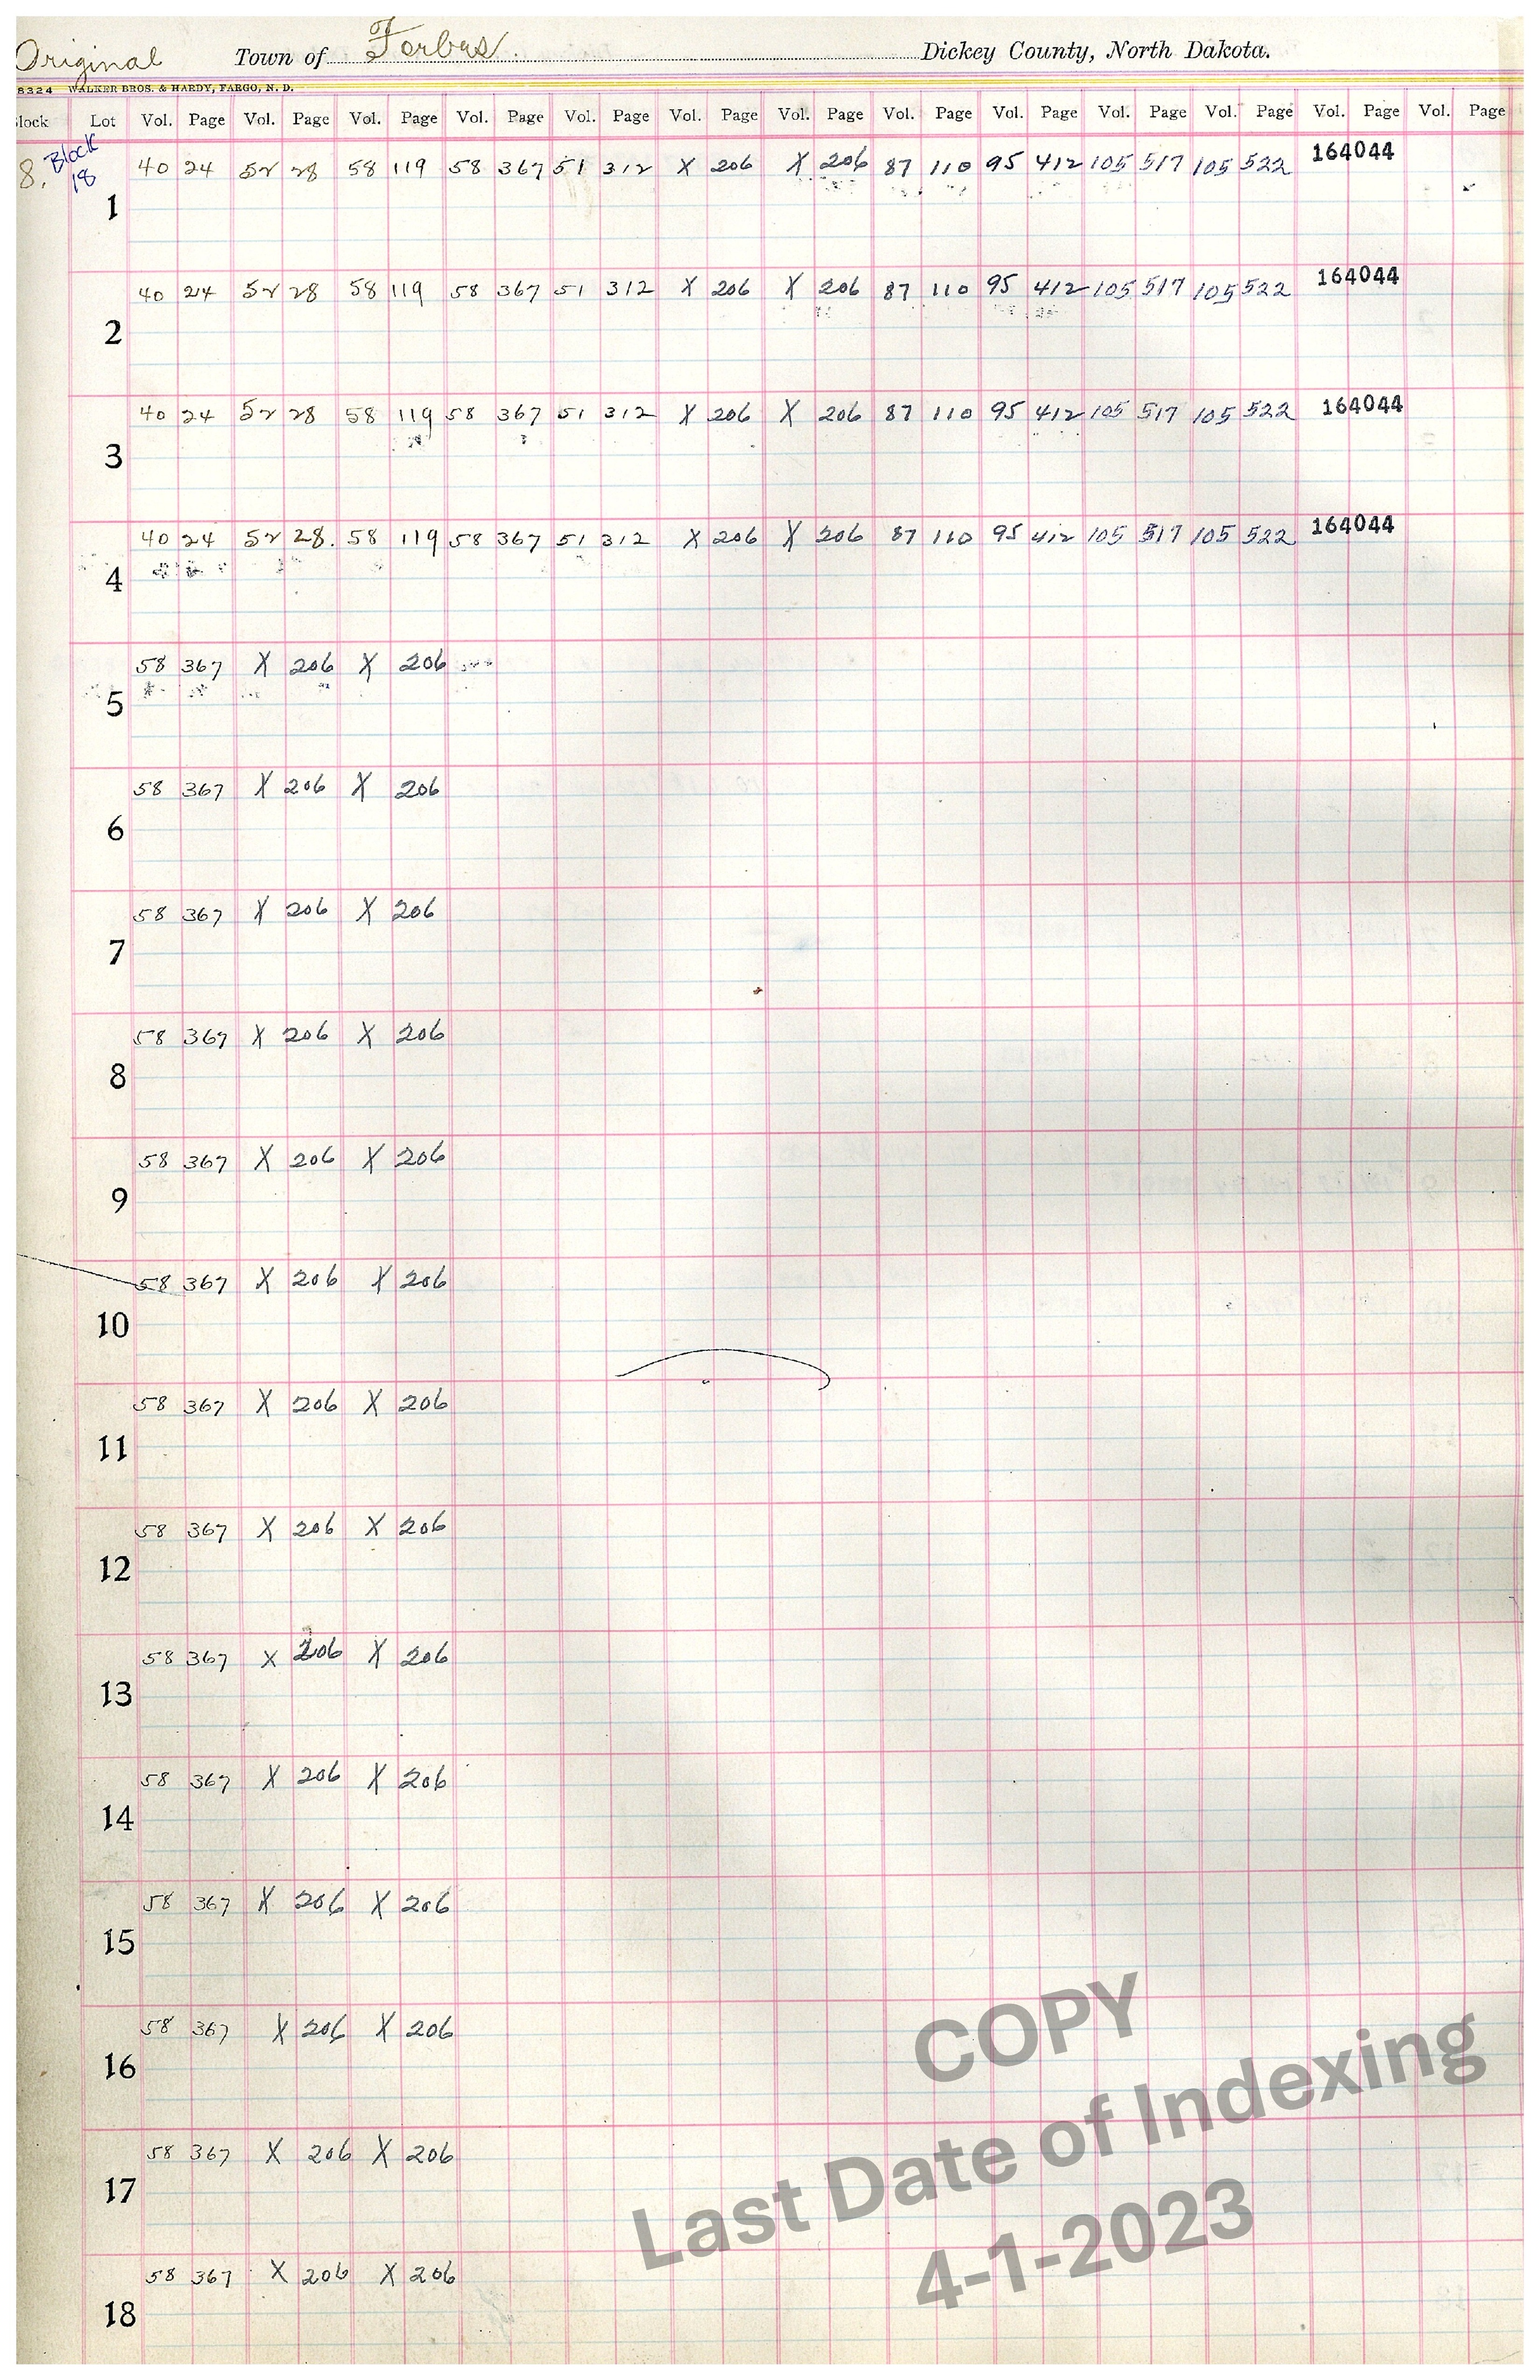 Original Town of Forbes. Dickey County, North Dakota.
8324 WALKER BROS. & HARDY, FARGO, N. D.
lock Lot Vol. Page Vol. Page Vol. Page Vol. Page Vol. Page Vol. Page Vol. Page Vol. Page Vol. Page Vol. Page Vol. Page Vol. Page Vol. Page
8. Block 40 24 52 28 58 119 58 367 51 312 X 206 X 206 87 110 95 412 105 517 105 522 164044
18
1
40 24 52 28 58 119 58 367 51 312 X 206 X 206 87 110 95 412 105 517 105 522 164044
2
40 24 52 28 58 119 58 367 51 312 X 206 X 206 87 110 95 412 105 517 105 522 164044
3
40 24 52 28. 58 119 58 367 51 312 X 206 X 206 87 110 95 412 105 517 105 522 164044
4
58 367 X 206 X 206
5
58 367 X 206 X 206
6
58 367 X 206 X 206
7
58 367 X 206 X 206
8
58 367 X 206 X 206
9
58 367 X 206 X 206
10
58 367 X 206 X 206
11
58 367 X 206 X 206
12
58 367 X 206 X 206
13
58 367 X 206 X 206
14
58 367 X 206 X 206
15
58 367 X 206 X 206
16
58 367 X 206 X 206
17
58 367 X 206 X 206
18
COPY
Last Date of Indexing
4-1-2023